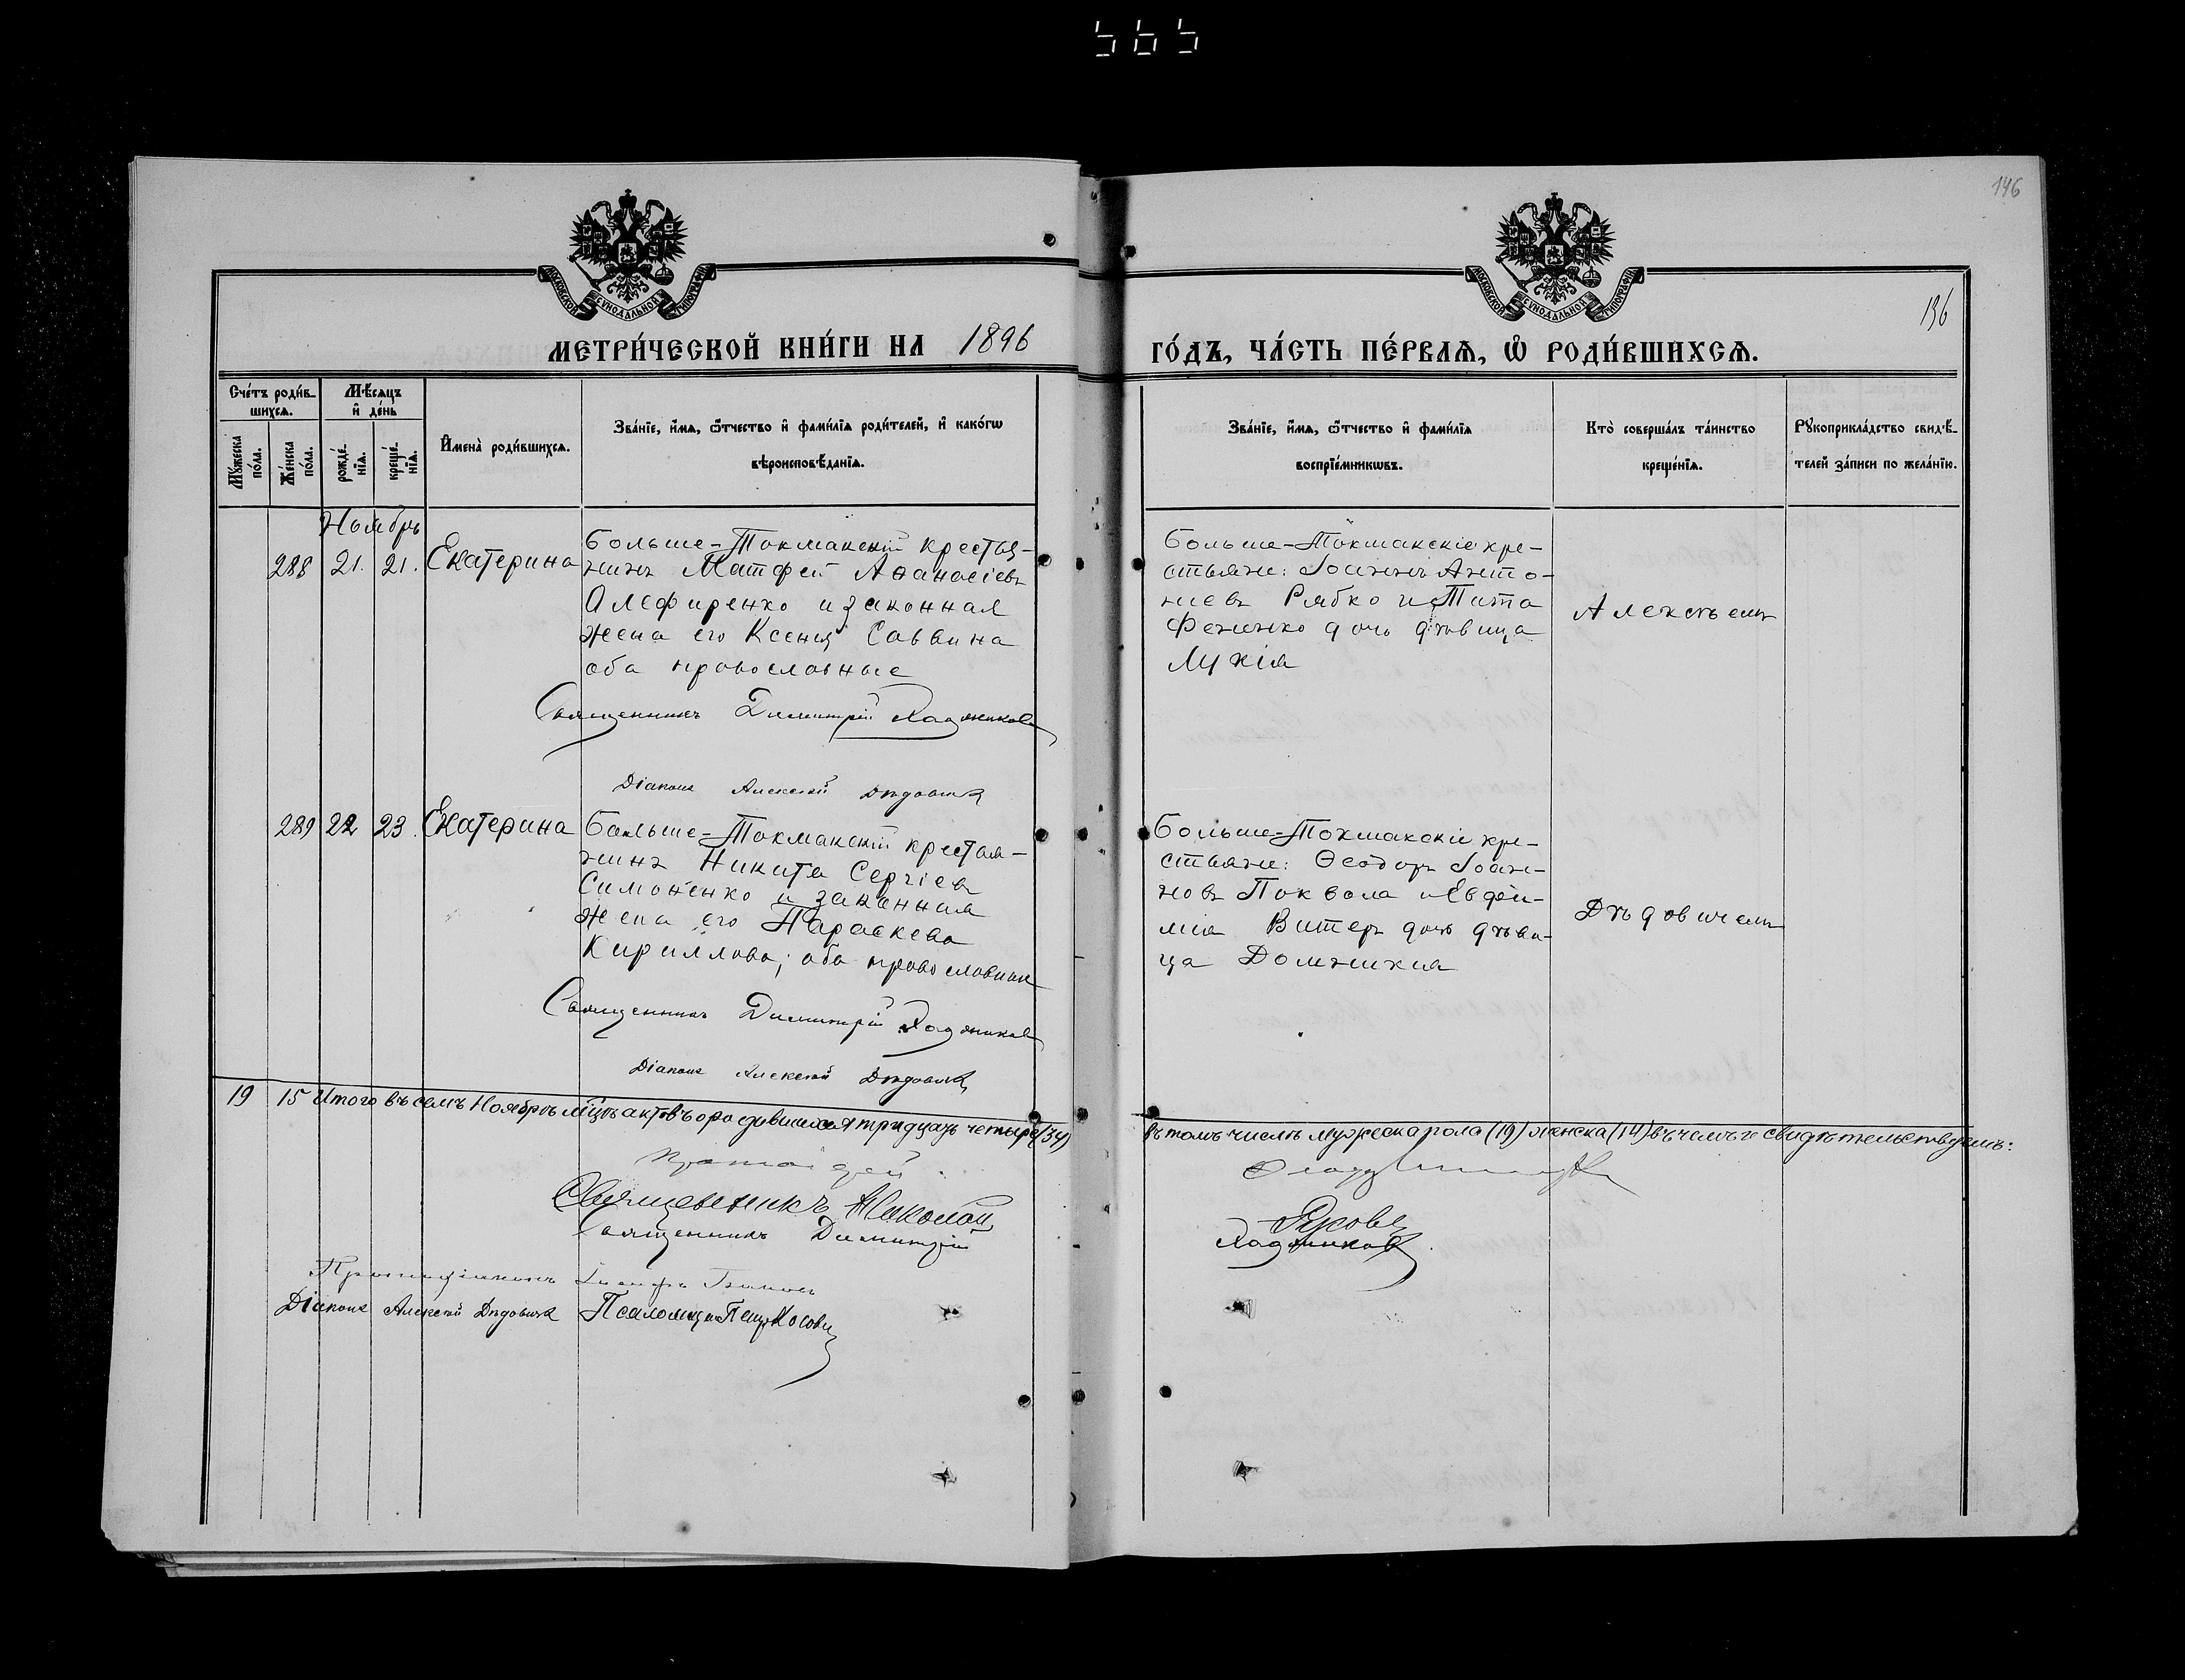 565
146
136
МОСКОВСКОЙ СѴНОДАЛЬНОЙ ТИПОГРАФІИ
МОСКОВСКОЙ СѴНОДАЛЬНОЙ ТИПОГРАФІИ
МЕТРИ́ЧЕСКОЙ КНИ́ГИ НА 1896
ГО́ДЪ, ЧА́СТЬ ПЕ́РВАѦ, Ѡ҆ РОДИ́ВШИХСѦ.
Сче́тъ роди́в-
шихсѧ.
Мꙋ́жеска
по́ла.
Же́нска
по́ла.
Мѣ́сѧцъ
и҆ де́нь
рожде́-
нїѧ.
креще́-
нїѧ.
И҆мена̀ роди́вшихсѧ.
Зва́нїе, и҆́мѧ, ѻ҆́тчество и҆ фами́лїѧ роди́телей, и҆ како́гѡ
вѣроисповѣ́данїѧ.
Зва́нїе, и҆́мѧ, ѻ҆́тчество и҆ фами́лїѧ
воспрїе́мникѡвъ.
Кто̀ соверша́лъ та́инство
креще́нїѧ.
Рꙋкоприкла́дство свидѣ́-
телей за́писи по жела́нїю.
Ноябрь
288 21. 21. Екатерина
Больше-Токмакскій крестья-
нинъ Матфей Аѳанасіевъ
Алефиренко и законная
жена его Ксенія Саввина
оба православные
Священникъ Димитрій Хаджиновъ
Діаконъ Алексѣй Дѣдовичъ
Больше-Токмакскіе кре-
стьяне: Іоаннъ Анто-
ніевъ Рябко и Тита
Фененко дочь дѣвица
Лукія
Алексѣемъ
289 22 23. Екатерина
Больше-Токмакскій крестья-
нинъ Никита Сергіевъ
Симоненко и законная
жена его Параскева
Кириллова; оба православные
Священникъ Димитрій Хаджиновъ
Діаконъ Алексѣй Дѣдовичъ
Больше-Токмакскіе кре-
стьяне: Ѳеодоръ Іоан-
новъ Поквола и Евфи-
мія Витеръ дочь дѣви-
ца Домникия
Дѣдовичемъ
19 15 Итого въ семъ Ноябрѣ мѣцѣ актовъ о родившихся тридцать четыре (34)
въ томъ числѣ мужеска пола (19) женска (14) въ чемъ и свидѣтельствуемъ:
Протоіерей
Священникъ Николай
Священникъ Димитрій
Хаджиновъ
Протодіаконъ
Діаконъ Алексѣй Дѣдовичъ Псаломщ. Петръ Косовъ